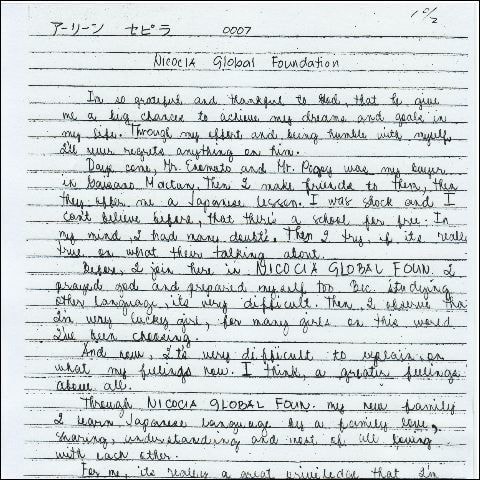 10/2
アーリーン セピラ 0007
NICOCIA Global Foundation
Im so grateful and thankful to God, that he give
me a big chances to achieve my dreams and goals in
my life. Through my effort and being humble with myself
I'll never regrets anything on him.
Days come, Mr. Enomoto and Mr. Peggy was my buyer
in Mactan. Then I make friends to them, then
they offer me a Japanese lesson. I was shock and I
can't believe before, that there's a school for free. In
my mind, I had many doubt's. Then I try, if its really
true on what their talking about.
Before, I join here in NICOCIA GLOBAL FOUN. I
prayed god and prepared myself too. Bec. studying
other language, its very difficult. Then I observe that
I'm very lucky girl, for many girls on this world
I've been choosing.
And now, I's very difficult to explain on
what my feelings now. I think, a greater feelings
above all.
Through NICOCIA GLOBAL FOUN. my new family
I learn Japanese language by a family love,
sharing, understanding and most of all loving
with each other.
For me, its really a great priviledge that I'm